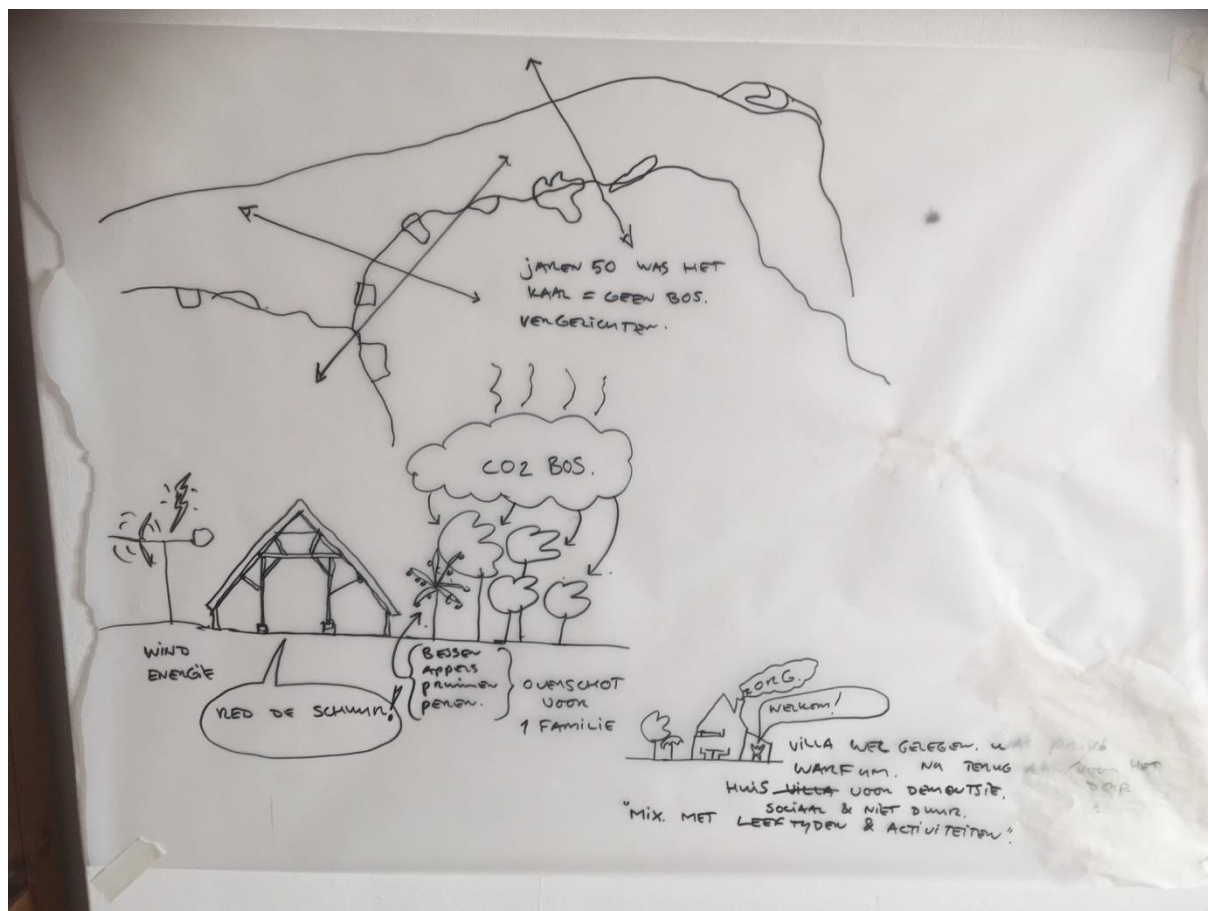 jaren 50 was het
kaal = geen bos.
vergezichten.
CO2 BOS.
WIND
ENERGIE
RED DE SCHUUR!
BESSEN
APPELS
pruimen
peren.
OVERSCHOT
VOOR
1 FAMILIE
ZORG.
WELKOM!
VILLA WEL GELEGEN. WAS privé
WARFUM. NU TERUG AAN/VOOR HET
DORP.
HUIS VILLA VOOR DEMENTSIE.
SOCIAAL & NIET DUUR.
"MIX. MET LEEFTYDEN & ACTIVITEITEN".